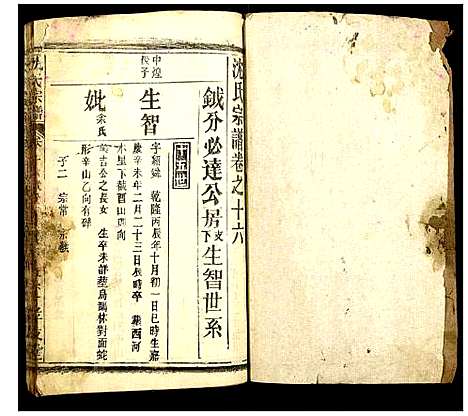 沈氏宗譜卷之十六
鉞分必達公房支下生智世系
十五世
申煌長子
生智
字 乾隆丙辰年十月初一日巳時生嘉
慶辛未年二月二十三日辰時卒 葬西河
木里下截酉山卯向
妣余氏
吉公之長女 生卒未詳葬烏鴉林對面蛇
形辛山乙向有碑
子二 宗常 宗
氏宗譜